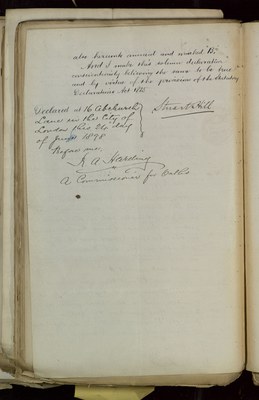 also hereunto annexed and marked "B".
And I make this solemn declaration
conscientiously believing the same to be true
and by virtue of the provisions of the Statutory
Declarations Act 1835
Declared at 16 Abchurch
Lane in the City of
London this 26 day
of 1898
Before me,
A Harding
A Commissioner for Oaths